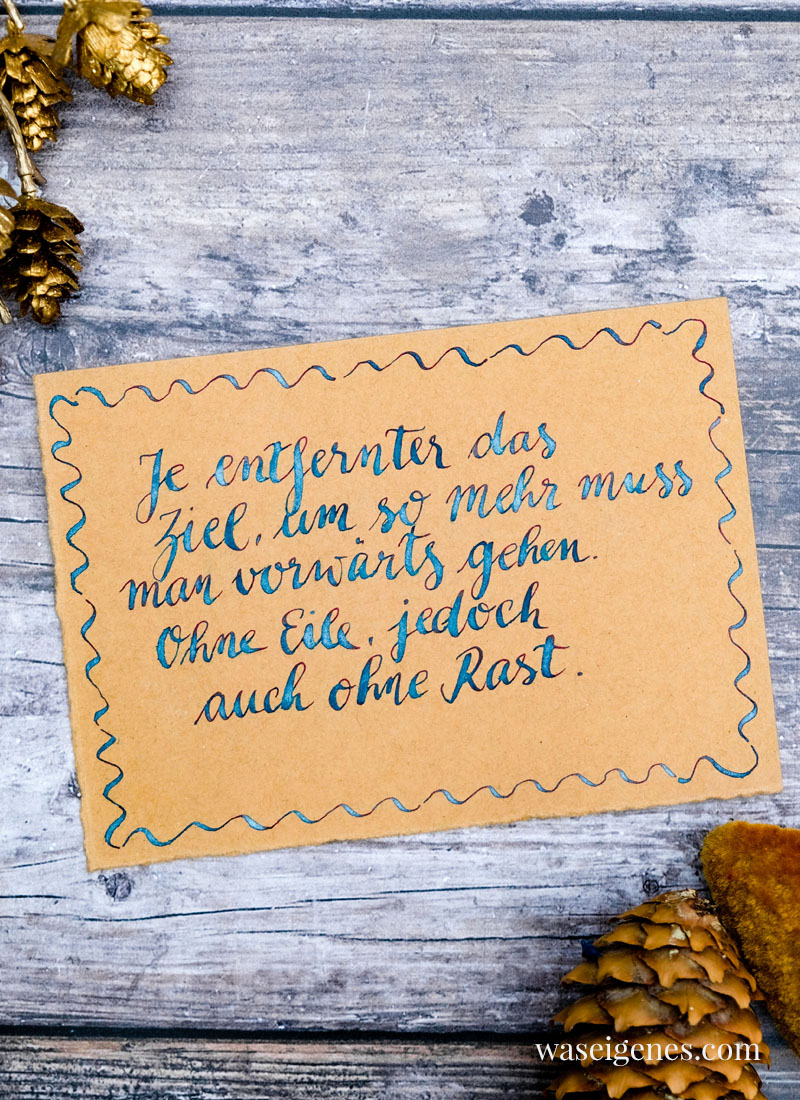 Je entfernter das
Ziel, um so mehr muss
man vorwärts gehen.
Ohne Eile, jedoch
auch ohne Rast.
waseigenes.com